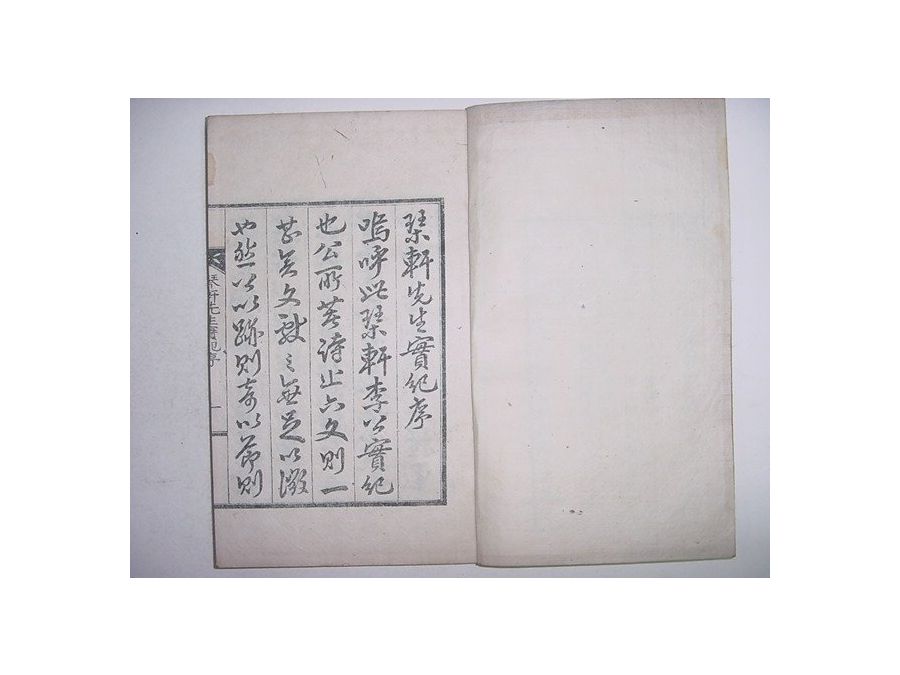 琹軒先生實紀序
嗚呼此琹軒李公實紀
也公所著詩止六文則一
甚矣文獻之無足以徵
也然公以跡則奇以節則
琴軒先生實紀序 一